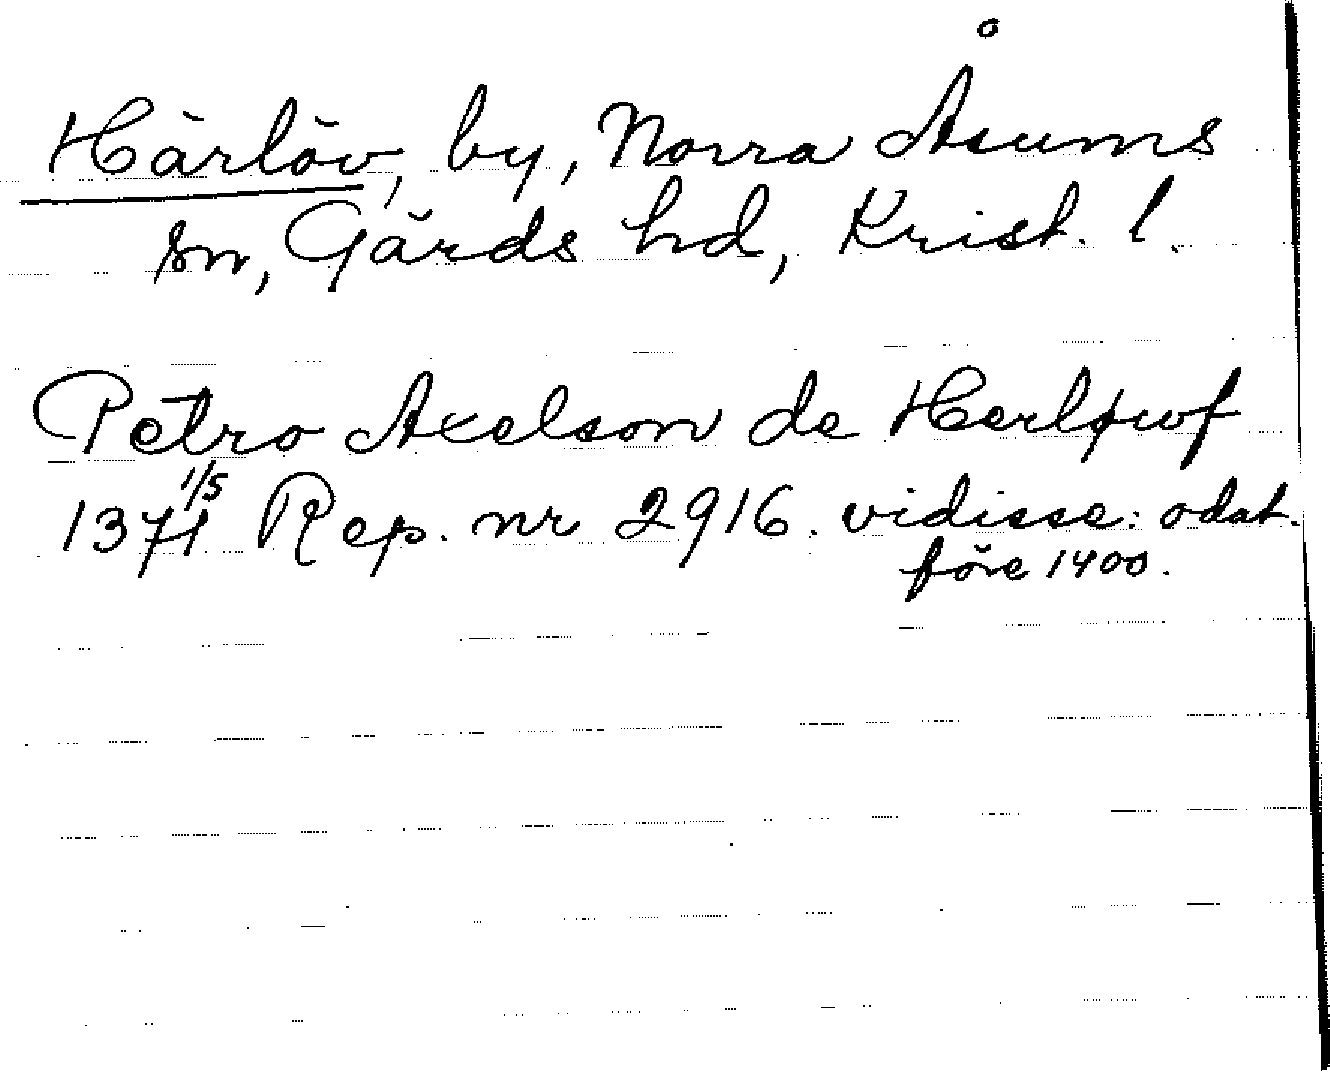 Härlöv, by, Norra Åsums
sn, Gärds hd, Krist. l.
Petro Axelson de Herløwf
1371 1/5 Rep. nr 2916. vidisse: odat.
före 1400.